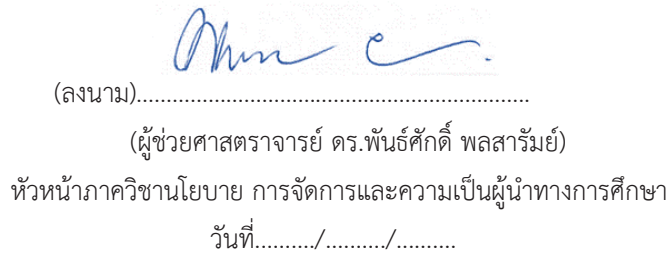 (ลงนาม)..................................................................
(ผู้ช่วยศาสตราจารย์ ดร.พันธ์ศักดิ์ พลสารัมย์)
หัวหน้าภาควิชานโยบาย การจัดการและความเป็นผู้นำทางการศึกษา
วันที่........../........../..........